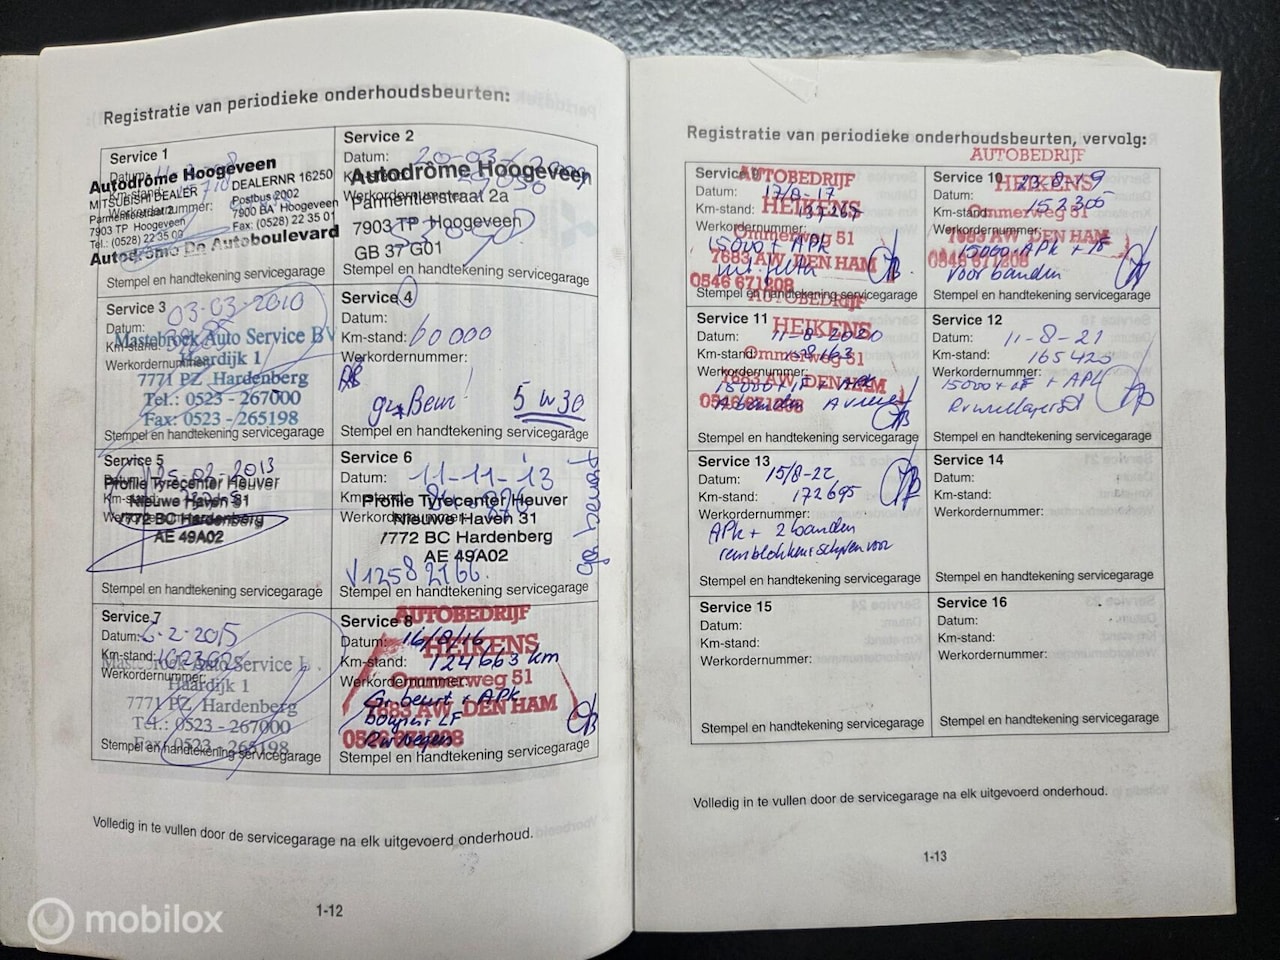 Registratie van periodieke onderhoudsbeurten:
Service 1
Datum:
Autodrôme Hoogeveen
Km-stand:
MITSUBISHI DEALER
DEALERNR 16250
Parmentierstaat 2
Postbus 2002
Werkordernummer:
7903 TP Hoogeveen
7900 BA Hoogeveen
Tel.: (0528) 22 35 00
Fax: (0528) 22 35 01
Autodrome De Autoboulevard
Stempel en handtekening servicegarage
Service 2
Datum: 20-03-2009
Autodrôme Hoogeveen
Km-stand:
Werkordernummer:
Parmentierstaat 2a
7903 TP Hoogeveen
GB 37 G01
Stempel en handtekening servicegarage
Service 3
03-03-2010
Datum:
Km-stand:
Mastebroek Auto Service BV
Werkordernummer:
Haardijk 1
7771 PZ Hardenberg
Tel.: 0523 - 267000
Fax: 0523 - 265198
Stempel en handtekening servicegarage
Service 4
Datum:
Km-stand: 60 000
Werkordernummer:
5 w 30
Stempel en handtekening servicegarage
Service 5
Datum: 25-02-2013
Profile Tyrecenter Heuver
Km-stand:
Nieuwe Haven 31
7772 BC Hardenberg
AE 49A02
Stempel en handtekening servicegarage
Service 6
Datum: 11-11-13
Km-stand:
Profile Tyrecenter Heuver
Werkordernummer:
Nieuwe Haven 31
7772 BC Hardenberg
AE 49A02
V12582166
Stempel en handtekening servicegarage
Service 7
Datum: 6-2-2015
Km-stand:
Mastebroek Auto Service
Werkordernummer:
Haardijk 1
7771 PZ Hardenberg
Tel.: 0523 - 267000
Fax: 0523 - 265198
Stempel en handtekening servicegarage
Service 8
AUTOBEDRIJF
Datum: 16/8/16
HEIKENS
Km-stand: 124663 km
Ommerweg 51
Werkordernummer:
Gr beurt + APK
7683 AW DEN HAM
0546 671208
Stempel en handtekening servicegarage
Volledig in te vullen door de servicegarage na elk uitgevoerd onderhoud.
1-12
Registratie van periodieke onderhoudsbeurten, vervolg:
Service 9
AUTOBEDRIJF
Datum: 17/8-17
HEIKENS
Km-stand: 137267
Werkordernummer:
Ommerweg 51
15000 + APK
7683 AW DEN HAM
0546 671208
Stempel en handtekening servicegarage
AUTOBEDRIJF
Service 10
HEIKENS
Datum: 23-8-19
Km-stand: 152300
Ommerweg 51
Werkordernummer:
7683 AW DEN HAM
15000 APK + LF
0546 671208
voor banden
Stempel en handtekening servicegarage
AUTOBEDRIJF
Service 11
HEIKENS
Datum: 11-8-2020
Km-stand:
Ommerweg 51
Werkordernummer:
7683 AW DEN HAM
15000 + LF + APK
0546 671208
Stempel en handtekening servicegarage
Service 12
Datum: 11-8-21
Km-stand: 165420
Werkordernummer:
15000 + LF + APK
Stempel en handtekening servicegarage
Service 13
Datum: 15/8-22
Km-stand: 172695
Werkordernummer:
APK + 2 banden
remblokken schijven voor
Stempel en handtekening servicegarage
Service 14
Datum:
Km-stand:
Werkordernummer:
Stempel en handtekening servicegarage
Service 15
Datum:
Km-stand:
Werkordernummer:
Stempel en handtekening servicegarage
Service 16
Datum:
Km-stand:
Werkordernummer:
Stempel en handtekening servicegarage
Volledig in te vullen door de servicegarage na elk uitgevoerd onderhoud.
1-13
mobilox